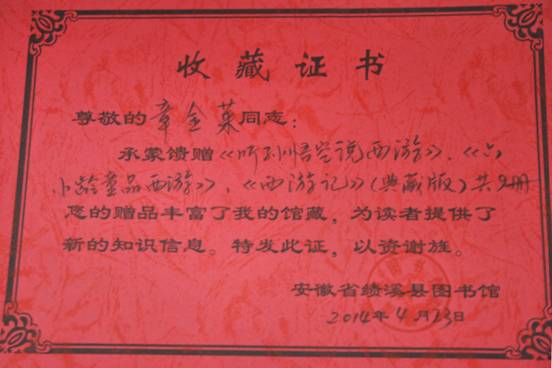 收藏证书
尊敬的章金莱同志：
承蒙馈赠《听孙悟空说西游》、《六
小龄童品西游》、《西游记》(典藏版)共9册
您的赠品丰富了我的馆藏，为读者提供了
新的知识信息。特发此证，以资谢旌。
安徽省绩溪县图书馆
2014年4月23日